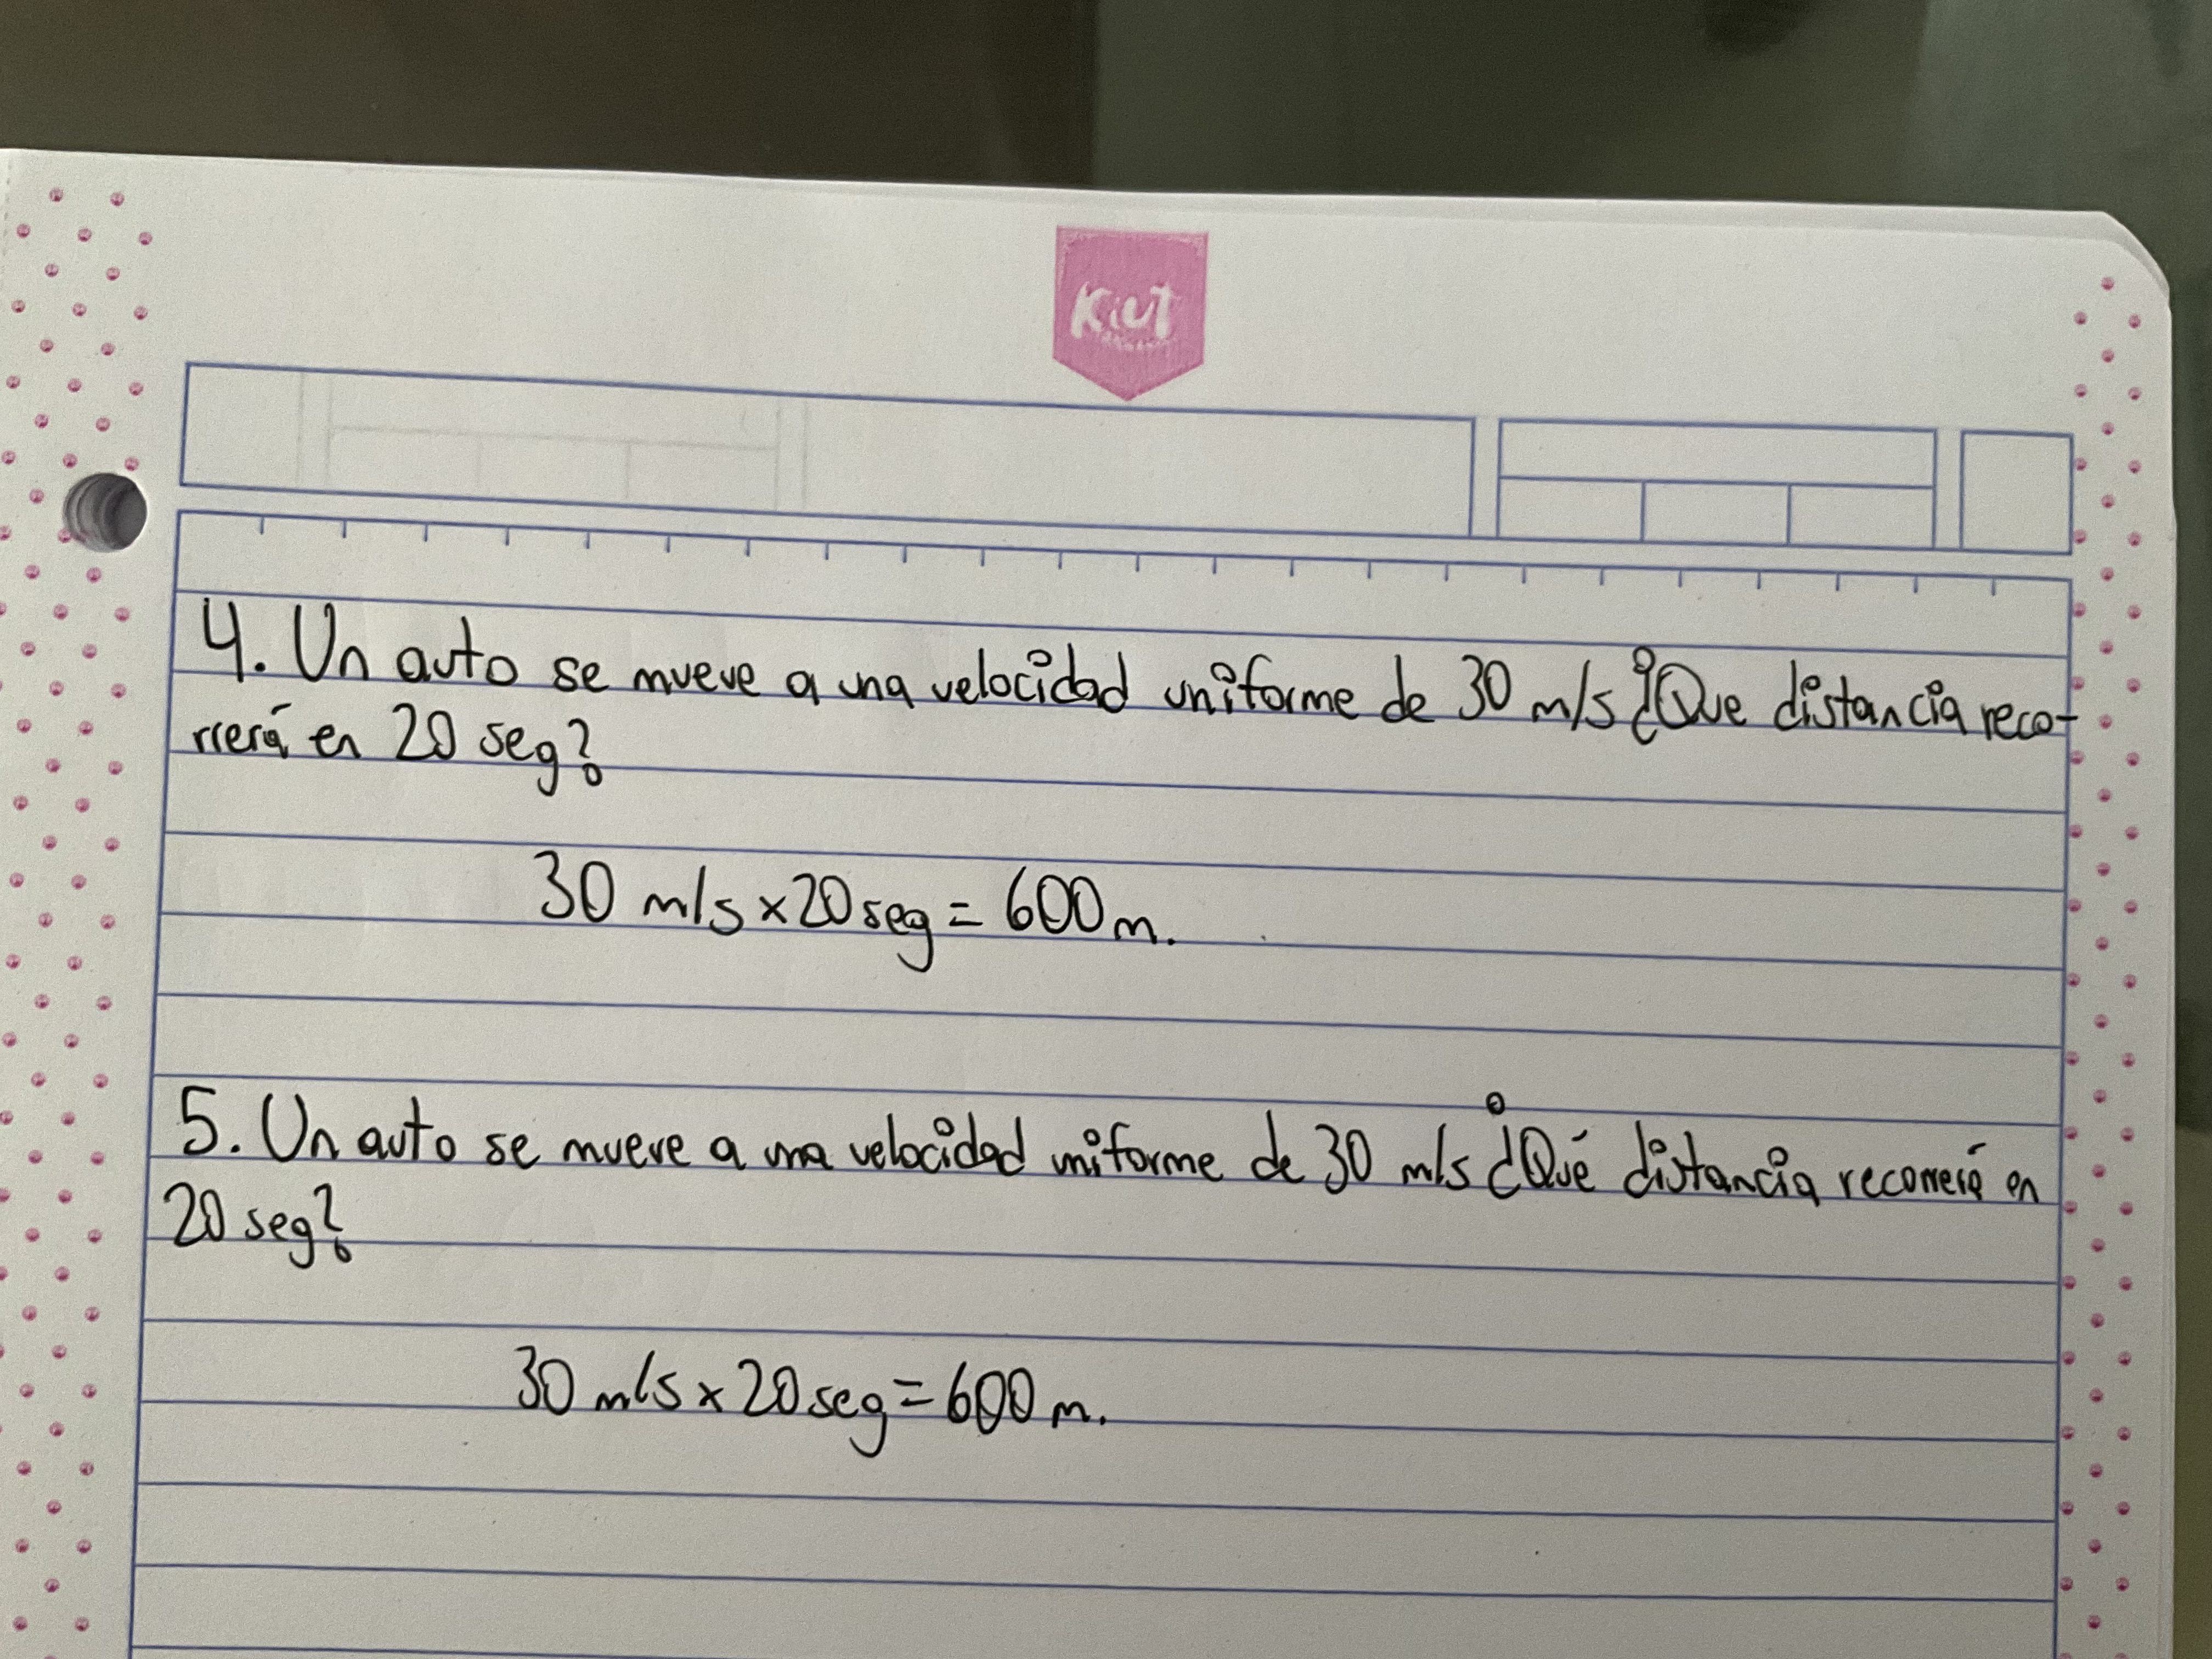 Kiut
4. Un auto se mueve a una velocidad uniforme de 30 m/s ¿Que distancia reco-
rrerá en 20 seg?
30 m/s x 20 seg = 600 m.
5. Un auto se mueve a una velocidad uniforme de 30 m/s ¿Qué distancia recorrerá en
20 seg?
30 m/s x 20 seg = 600 m.